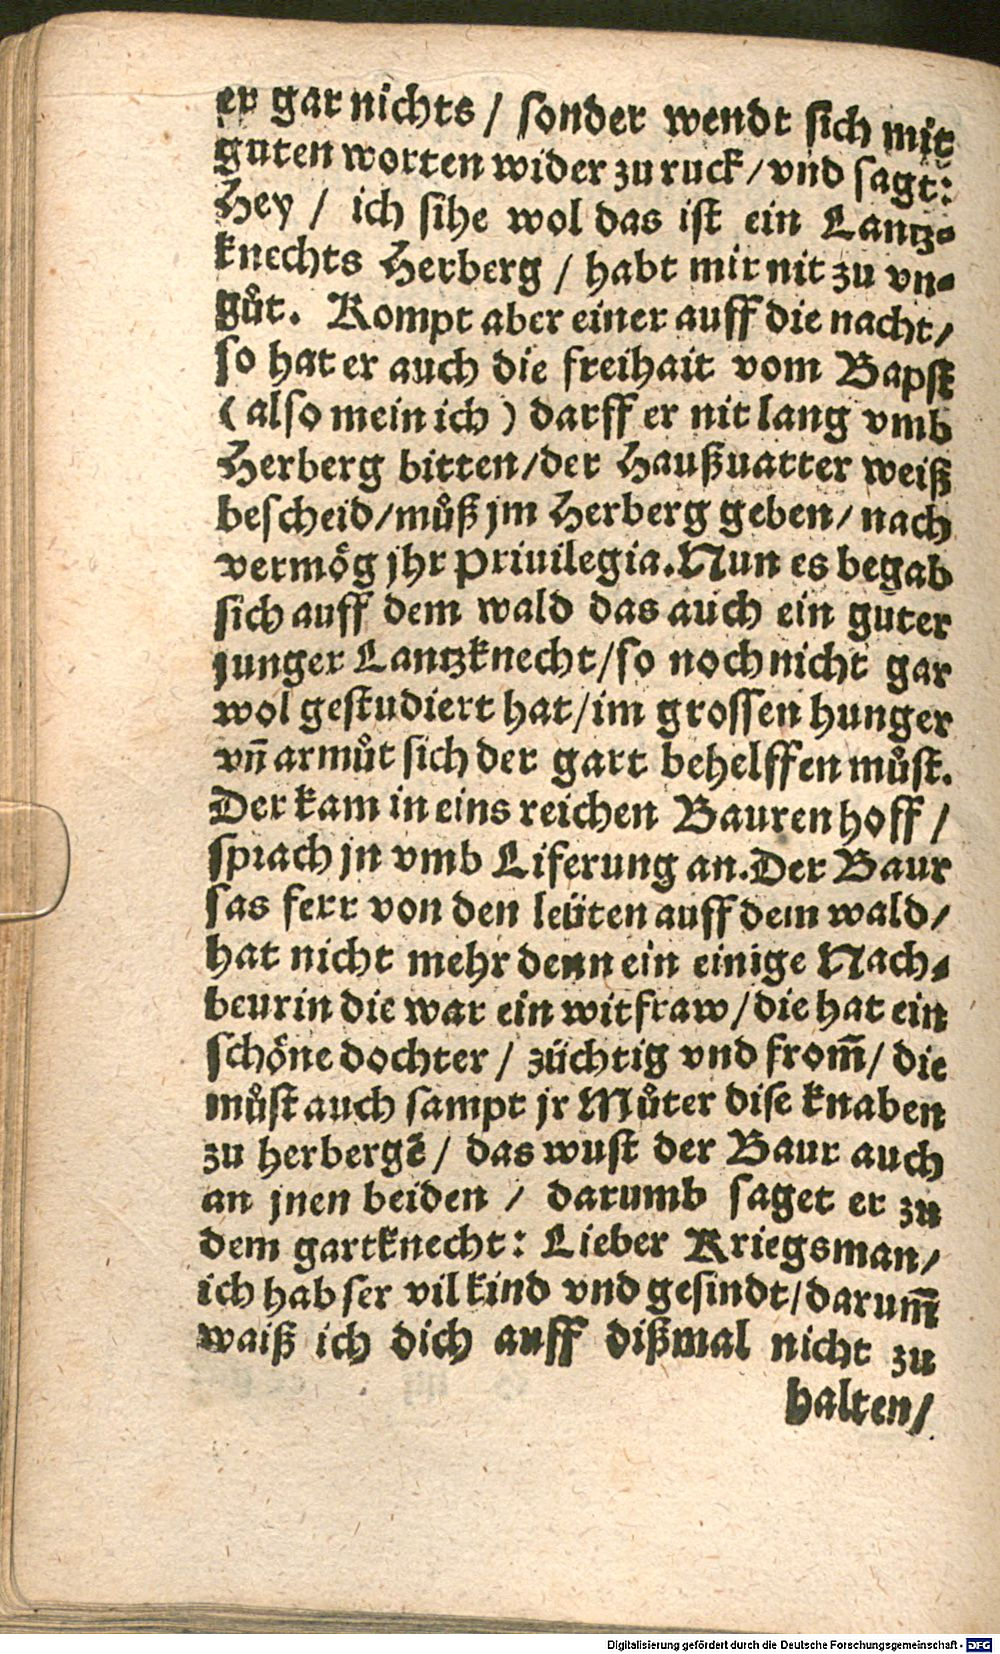 er gar nichts / sonder wendt sich mit
guten worten wider zu ruck / vnd sagt:
Hey / ich sihe wol das ist ein Lantz⸗
knechts Herberg / habt mir nit zu vn⸗
gůt. Kompt aber einer auff die nacht /
so hat er auch die freihait vom Bapst
( also mein ich ) darff er nit lang vmb
Herberg bitten / der Haußuatter weiß
bescheid / můß jm Herberg geben / nach
vermög jhr priuilegia. Nun es begab
sich auff dem wald das auch ein guter
junger Lantzknecht / so noch nicht gar
wol gestudiert hat / im grossen hunger
vñ armůt sich der gart behelffen můst.
Der kam in eins reichen Bauren hoff /
sprach jn vmb Liferung an. Der Baur
sas ferr von den leüten auff dem wald /
hat nicht mehr denn ein einige Nach⸗
beurin die war ein witfraw / die hat ein
schöne dochter / züchtig vnd from̃ / die
můst auch sampt jr Můter dise knaben
zu herbergẽ / das wust der Baur auch
an jnen beiden / darumb saget er zu
dem gartknecht: Lieber Kriegsman /
ich hab ser vil kind vnd gesindt / darum̃
waiß ich dich auff dißmal nicht zu
halten /
Digitalisierung gefördert durch die Deutsche Forschungsgemeinschaft - DFG